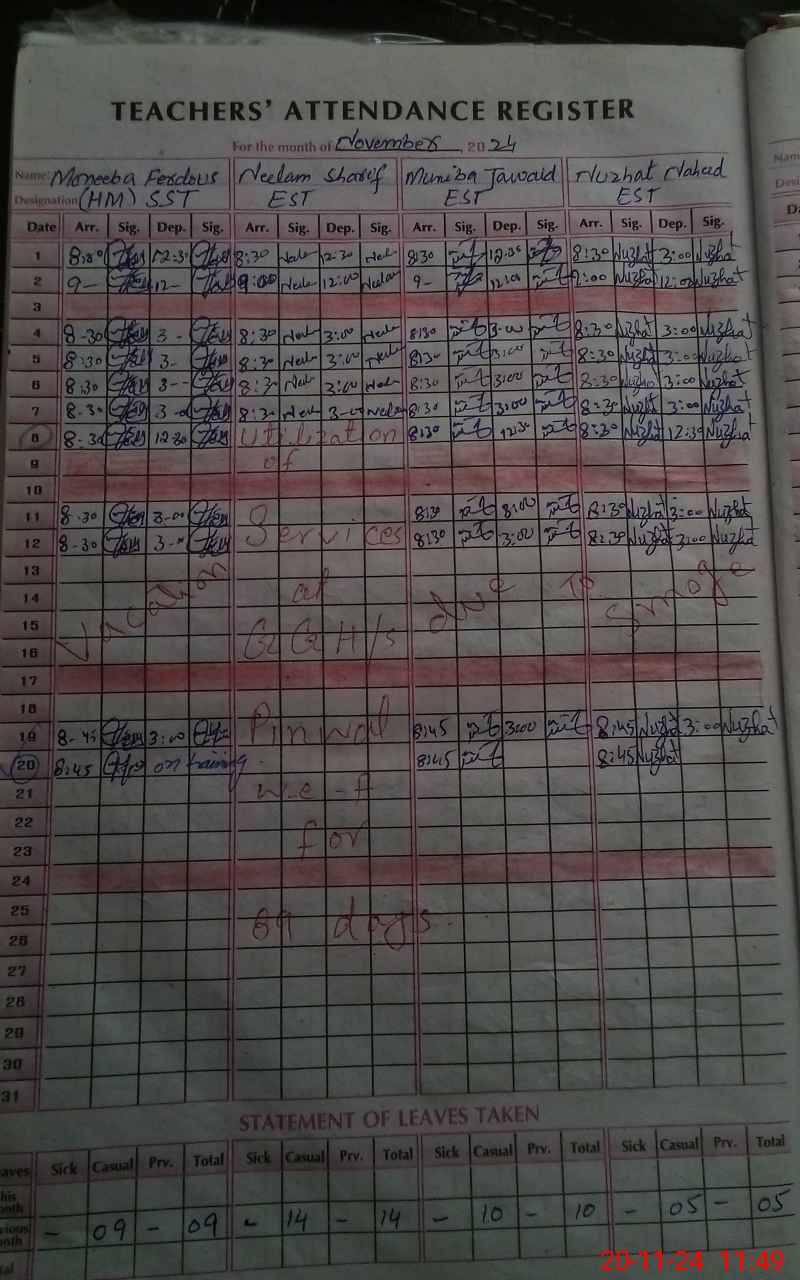 TEACHERS' ATTENDANCE REGISTER
For the month of November, 2024
Name: Moneeba Ferdous Neelam Sharif Muniba Jawaid Nuzhat Naheed
Designation (HM) SST EST EST EST
Date Arr. Sig. Dep. Sig. Arr. Sig. Dep. Sig. Arr. Sig. Dep. Sig. Arr. Sig. Dep. Sig.
1 8:30 12:30 8:30 12:30 8:30 8:30 Nuzhat 3:00 Nuzhat
2 9- 12- 9:00 12:00 9- 12:00 9:00 Nuzhat 12:00 Nuzhat
3
4 8-30 3- 8:30 3:00 8:30 3:00 8:30 Nuzhat 3:00 Nuzhat
5 8:30 3- 8:30 3:00 8:30 3:00 8:30 Nuzhat 3:00 Nuzhat
6 8:30 3-- 8:30 3:00 8:30 3:00 8:30 Nuzhat 3:00 Nuzhat
7 8-30 3-0 8:30 3-00 8:30 3:00 8:30 Nuzhat 3:00 Nuzhat
8 8-30 12:30 Utilization 8:30 12:30 8:30 Nuzhat 12:30 Nuzhat
9 of
10
11 8-30 3-00 8:30 8:30 Nuzhat 3:00 Nuzhat
12 8-30 3-00 Services 8:30 3:00 8:30 Nuzhat 3:00 Nuzhat
13
Vacation due to Smoge
14 at
15
16 GGH/S
17
18
19 8-45 3:00 Pinwal 8:45 3:00 8:45 Nuzhat 3:00 Nuzhat
20 8:45 on training 8:45 8:45 Nuzhat
21 w.e-f
22
23 for
24
25
26 89 days.
27
28
29
30
31
STATEMENT OF LEAVES TAKEN
eaves Sick Casual Prv. Total Sick Casual Prv. Total Sick Casual Prv. Total Sick Casual Prv. Total
his onth
vious onth - 09 - 09 - 14 - 14 - 10 - 10 - 05 - 05
tal
20-11-24 11:49